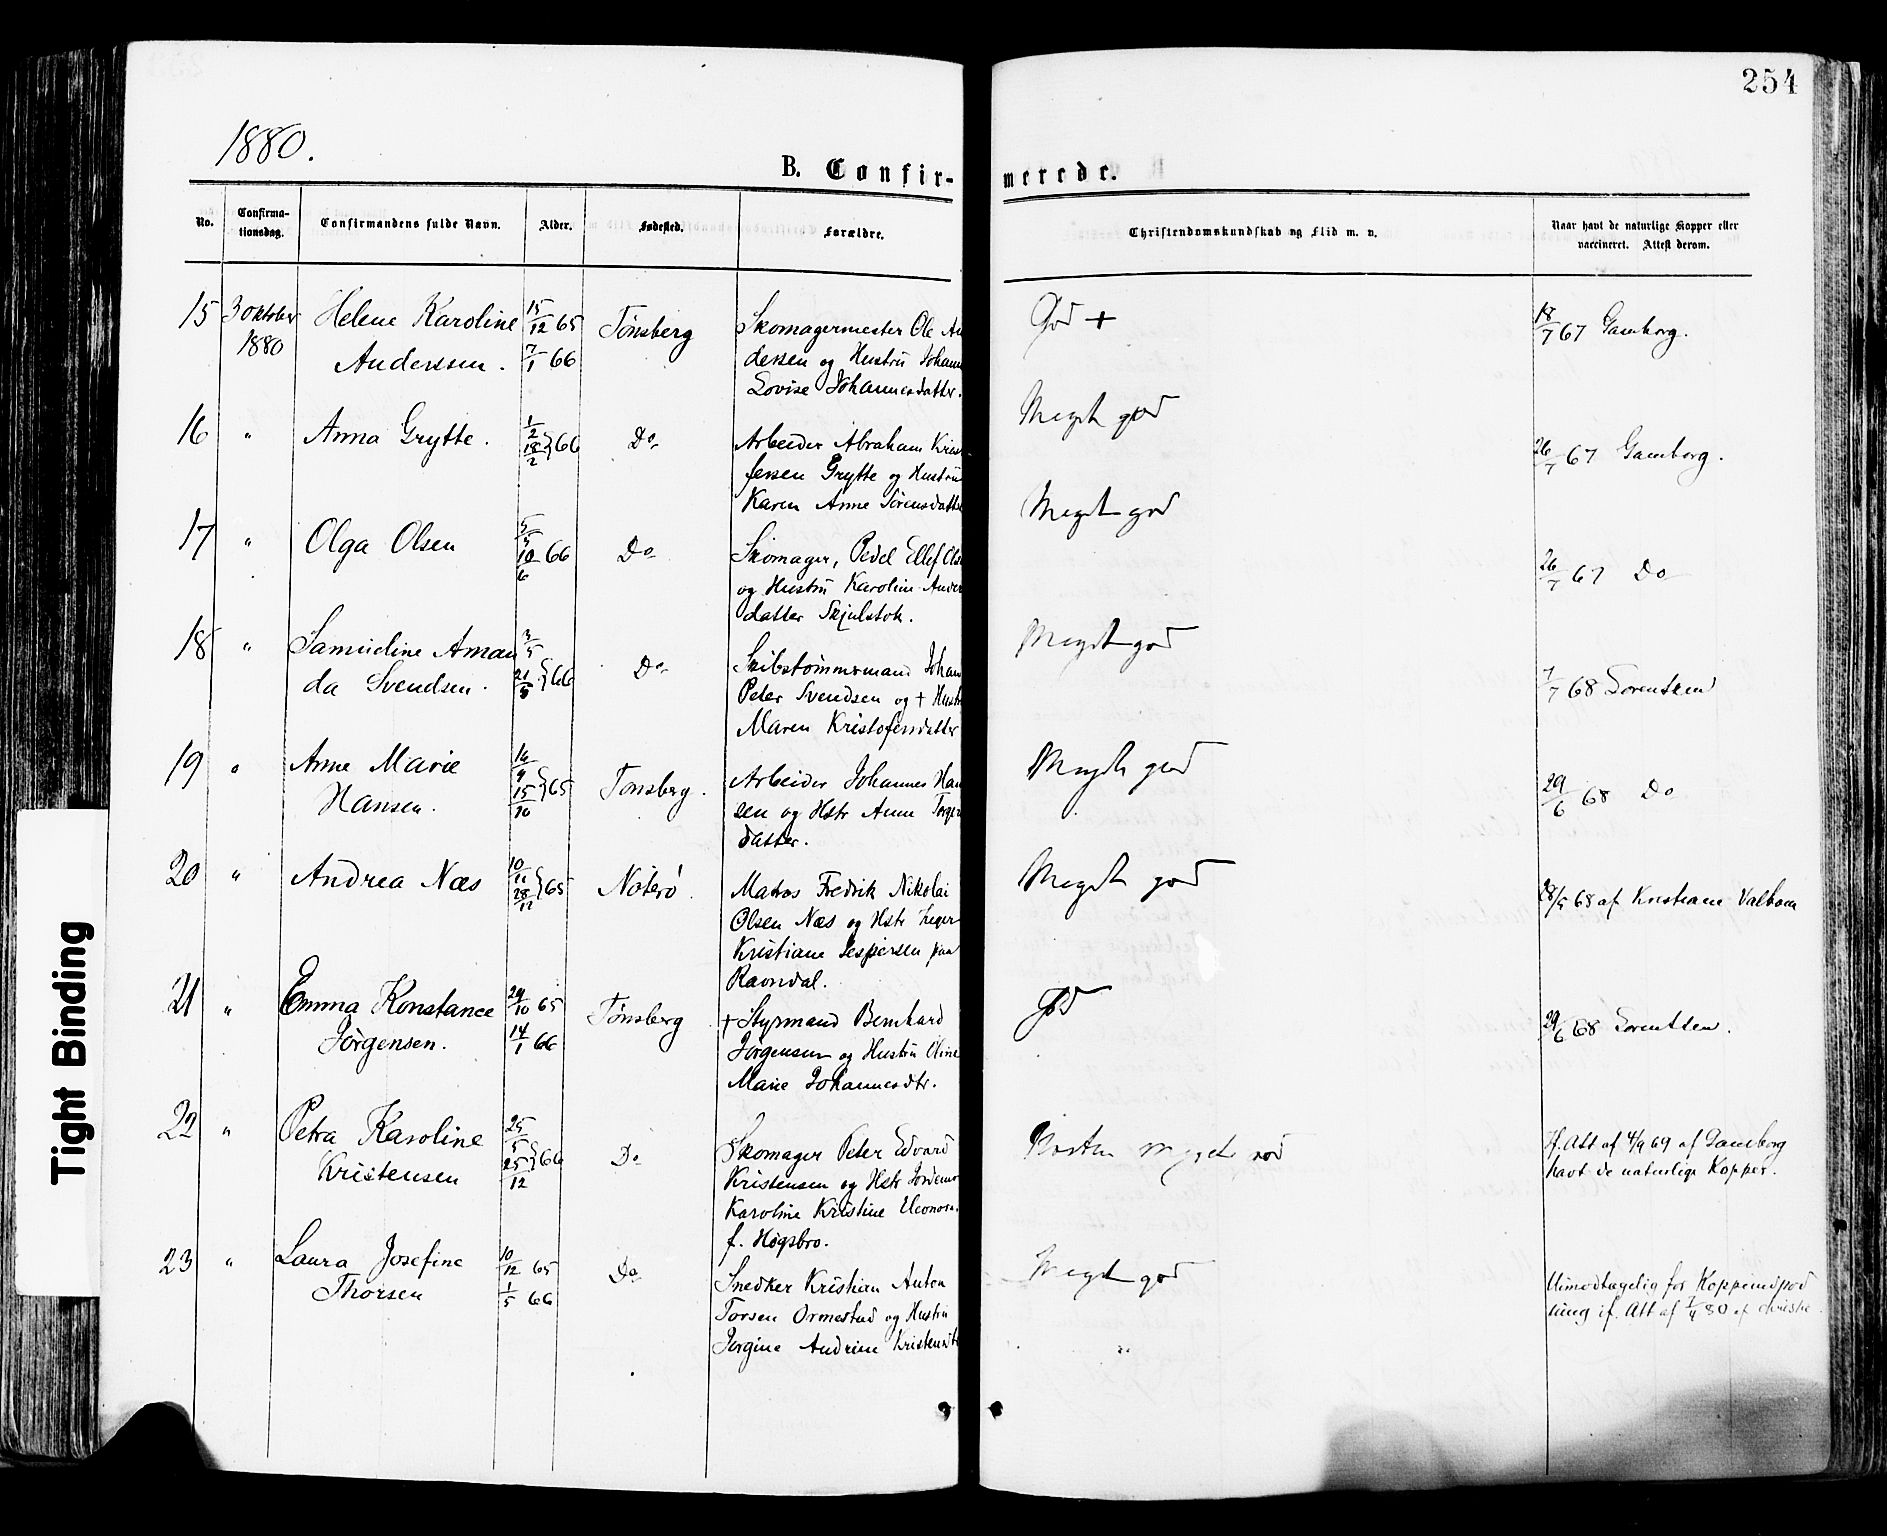 254
1880.
B. Confirmerede.
No.
Confirmationsdag.
Confirmandens fulde Navn.
Alder.
Fødested.
Forældre.
Christendomskundskab og Flid m. v.
Naar havt de naturlige Kopper eller
vaccineret. Attest derom.
15 3 oktober 1880 Helene Karoline Anderssen. 15/12 65 7/1 66 Tønsberg
Skomagermester Ole An
dersen og Hustru Johann
Lovise Johannesdatter.
God +
18/7 67 Gamborg.
16 " Anna Grytte. 1/2 18/2 66 Do
Arbeider Abraham Kris
fersen Grytte og Hustru
Karen Anne Sørensdatte
Meget god
26/7 67 Gamborg.
17 " Olga Olsen 5/5 10/6 66 Do
Skomager, Pedel Ellef Ols
og Hustru Karoline Ander
datter Skjulstok.
Meget god
26/7 67 Do
18 " Samudine Aman
da Svendsen. 3/5 21/5 66 Do
Skibstømmermand Johan
Peter Svendsen og + Hustr
Maren Kristofersdatter
Meget god
7/7 68 Sorentsen
19 " Anne Marie
Hansen. 14/9 15/10 65 Tønsberg.
Arbeider Johannes Han
sen og Hstr Anne Torger
datter.
Meget god
29/6 68 Do
20 " Andrea Næs 10/11 28/12 65 Nøterø.
Matros Fredrik Nikolai
Olsen Næs og Hstr Inger
Kristiane Jespersen paa
Ravndal.
Meget god
28/5 68 af Kristiane Valbom
21 " Emma Konstance
Jørgensen. 29/10 65 14/1 66 Tønsberg
+ Styrmand Bernhard
Jørgensen og Hustru Oline
Marie Johannesdtr.
God
29/6 68 Sorentsen.
22 " Petra Karoline
Kristensen 25/5 25/12 66 Do
Skomager Peter Edvard
Kristensen og Hstr Jordemo
Karoline Kristine Eleonora
f. Høgsbro.
Næsten meget god
If. Att af 4/9 69 af Gamborg
havt de naturlige Kopper.
23 " Laura Josefine
Thorsen 10/12 65 1/5 66 Do
Snedker Kristian Anton
Torsen Ormestad og Hustru
Jorgine Andrine Kristensdt
Meget god
"
Uimodtagelig for Koppeindpod
ning if. Att af 1/4 80 af Christie.
Tight Binding